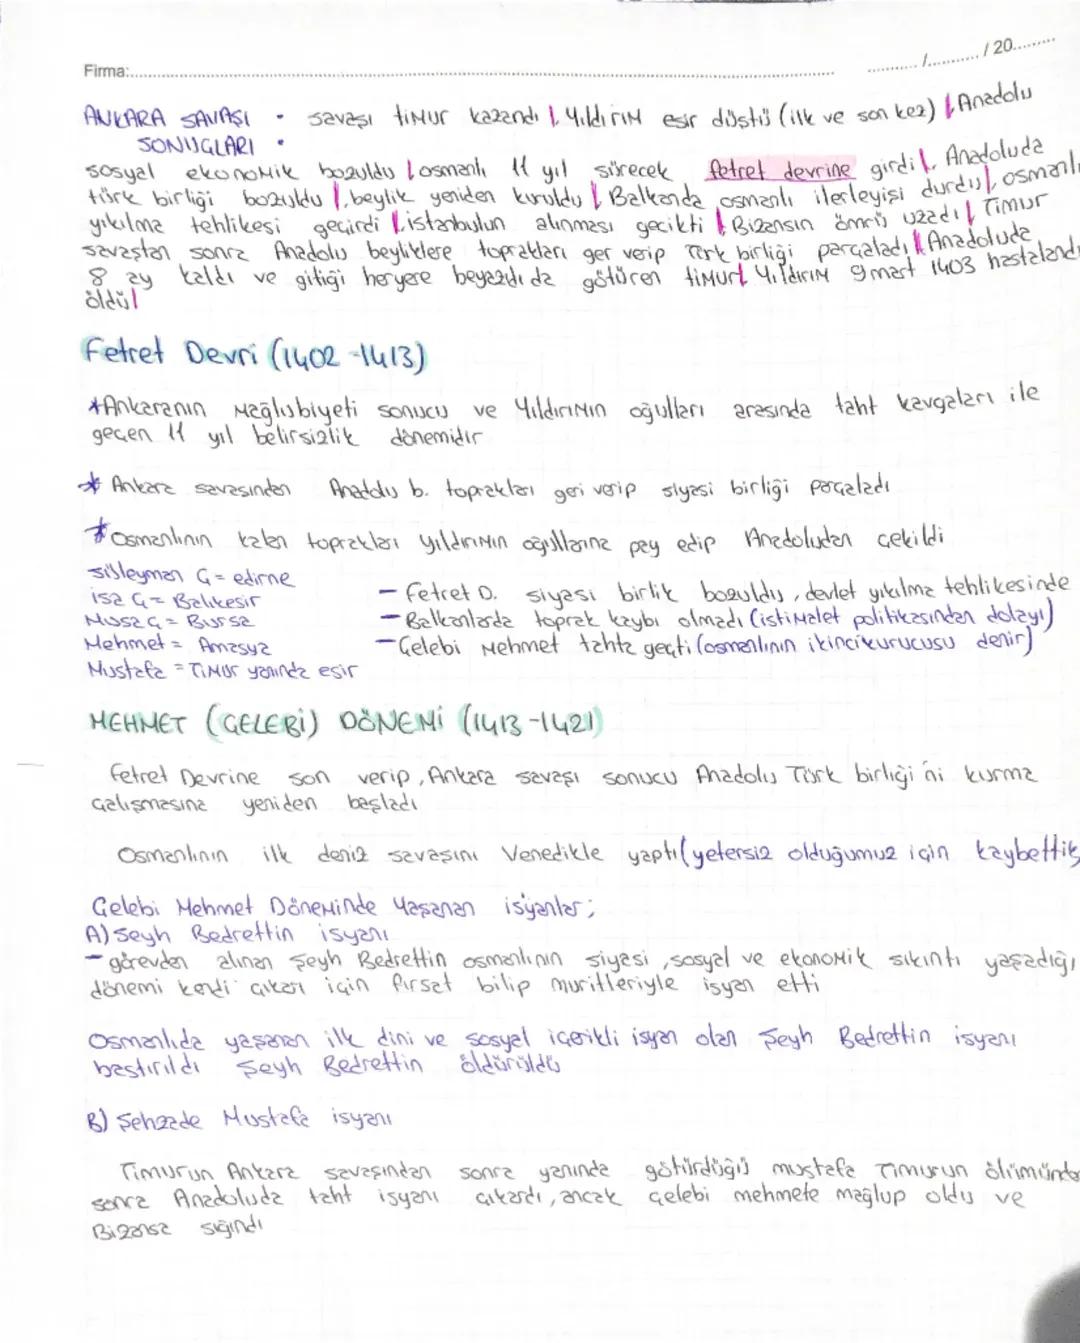 Firma:........../.........../ 20..........
ANKARA SAVAŞI • savaşı timur kazandı | Yıldırım esir düştü (ilk ve son kez) | Anadolu
SONUÇLARI •
sosyal ekonomik bozuldu | osmanlı 11 yıl sürecek fetret devrine girdi |. Anadoluda
türk birliği bozuldu |, beylik yeniden kuruldu | Balkanda osmanlı ilerleyişi durdu | osmanlı
yıkılma tehlikesi geçirdi | istanbulun alınması gecikti | Bizansın ömrü uzadı | Timur
savaştan sonra Anadolu beyliklere toprakları ger verip Türk birliği parçaladı | Anadoluda
8 ay kaldı ve gittiği heryere beyazıdı da götüren timur | Yıldırım 9 mart 1403 hastalandı
öldü |
Fetret Devri (1402 -1413)
*Ankaranın mağlubiyeti sonucu ve Yıldırımın oğulları arasında taht kavgaları ile
geçen 11 yıl belirsizlik dönemidir
* Ankara savasından Anadolu b. toprakları geri verip siyasi birliği parçaladı
*Osmanlının kalan toprakları yıldırımın oğullarına pay edip Anadoludan çekildi
süleyman Ç = edirne
isa Ç = Balıkesir
Musa Ç = Bursa
Mehmet = Amasya
Mustafa = Timur yanında esir
– Fetret D. siyasi birlik bozuldu, devlet yıkılma tehlikesinde
– Balkanlarda toprak kaybı olmadı (istimalet politikasından dolayı)
– Çelebi Mehmet tahta geçti (osmanlının ikinci kurucusu denir)
MEHMET (ÇELEBİ) DÖNEMİ (1413 -1421)
Fetret Devrine son verip, Ankara savaşı sonucu Anadolu Türk birliği'ni kurma
çalışmasına yeniden başladı
Osmanlının ilk deniz savaşını Venedikle yaptı (yetersiz olduğumuz için kaybettik
Çelebi Mehmet Döneminde Yaşanan isyanlar;
A) Şeyh Bedrettin isyanı
– görevden alınan Şeyh Bedrettin osmanlının siyasi, sosyal ve ekonomik sıkıntı yaşadığı,
dönemi kendi çıkarı için fırsat bilip muritleriyle isyan etti
Osmanlıda yaşanan ilk dini ve sosyal içerikli isyan olan Şeyh Bedrettin isyanı
bastırıldı Şeyh Bedrettin öldürüldü
B) Şehzade Mustafa isyanı
Timurun Ankara savaşından sonra yanında götürdüğü mustafa Timurun ölümünden
sonra Anadoluda taht isyanı çıkardı, ancak çelebi mehmete mağlup oldu ve
Bizansa sığındı